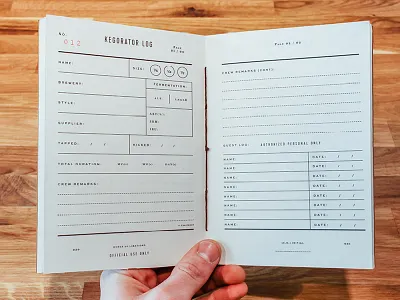 No.
012
KEGORATOR LOG
PAGE
01 / 02
NAME:
SIZE:
BREWERY:
FERMENTATION:
ALE
LAGER
STYLE:
ABV(%):
SRM:
IBU:
SUPPLIER:
TAPPED: / /
KICKED: / /
TOTAL DURATION:
CREW REMARKS:
OFFICIAL USE ONLY
PAGE 02 / 02
CREW REMARKS (CONT):
GUEST LOG: AUTHORIZED PERSONAL ONLY
NAME: DATE: / /
NAME: DATE: / /
NAME: DATE: / /
NAME: DATE: / /
NAME: DATE: / /
NAME: DATE: / /
NAME: DATE: / /
NAME: DATE: / /